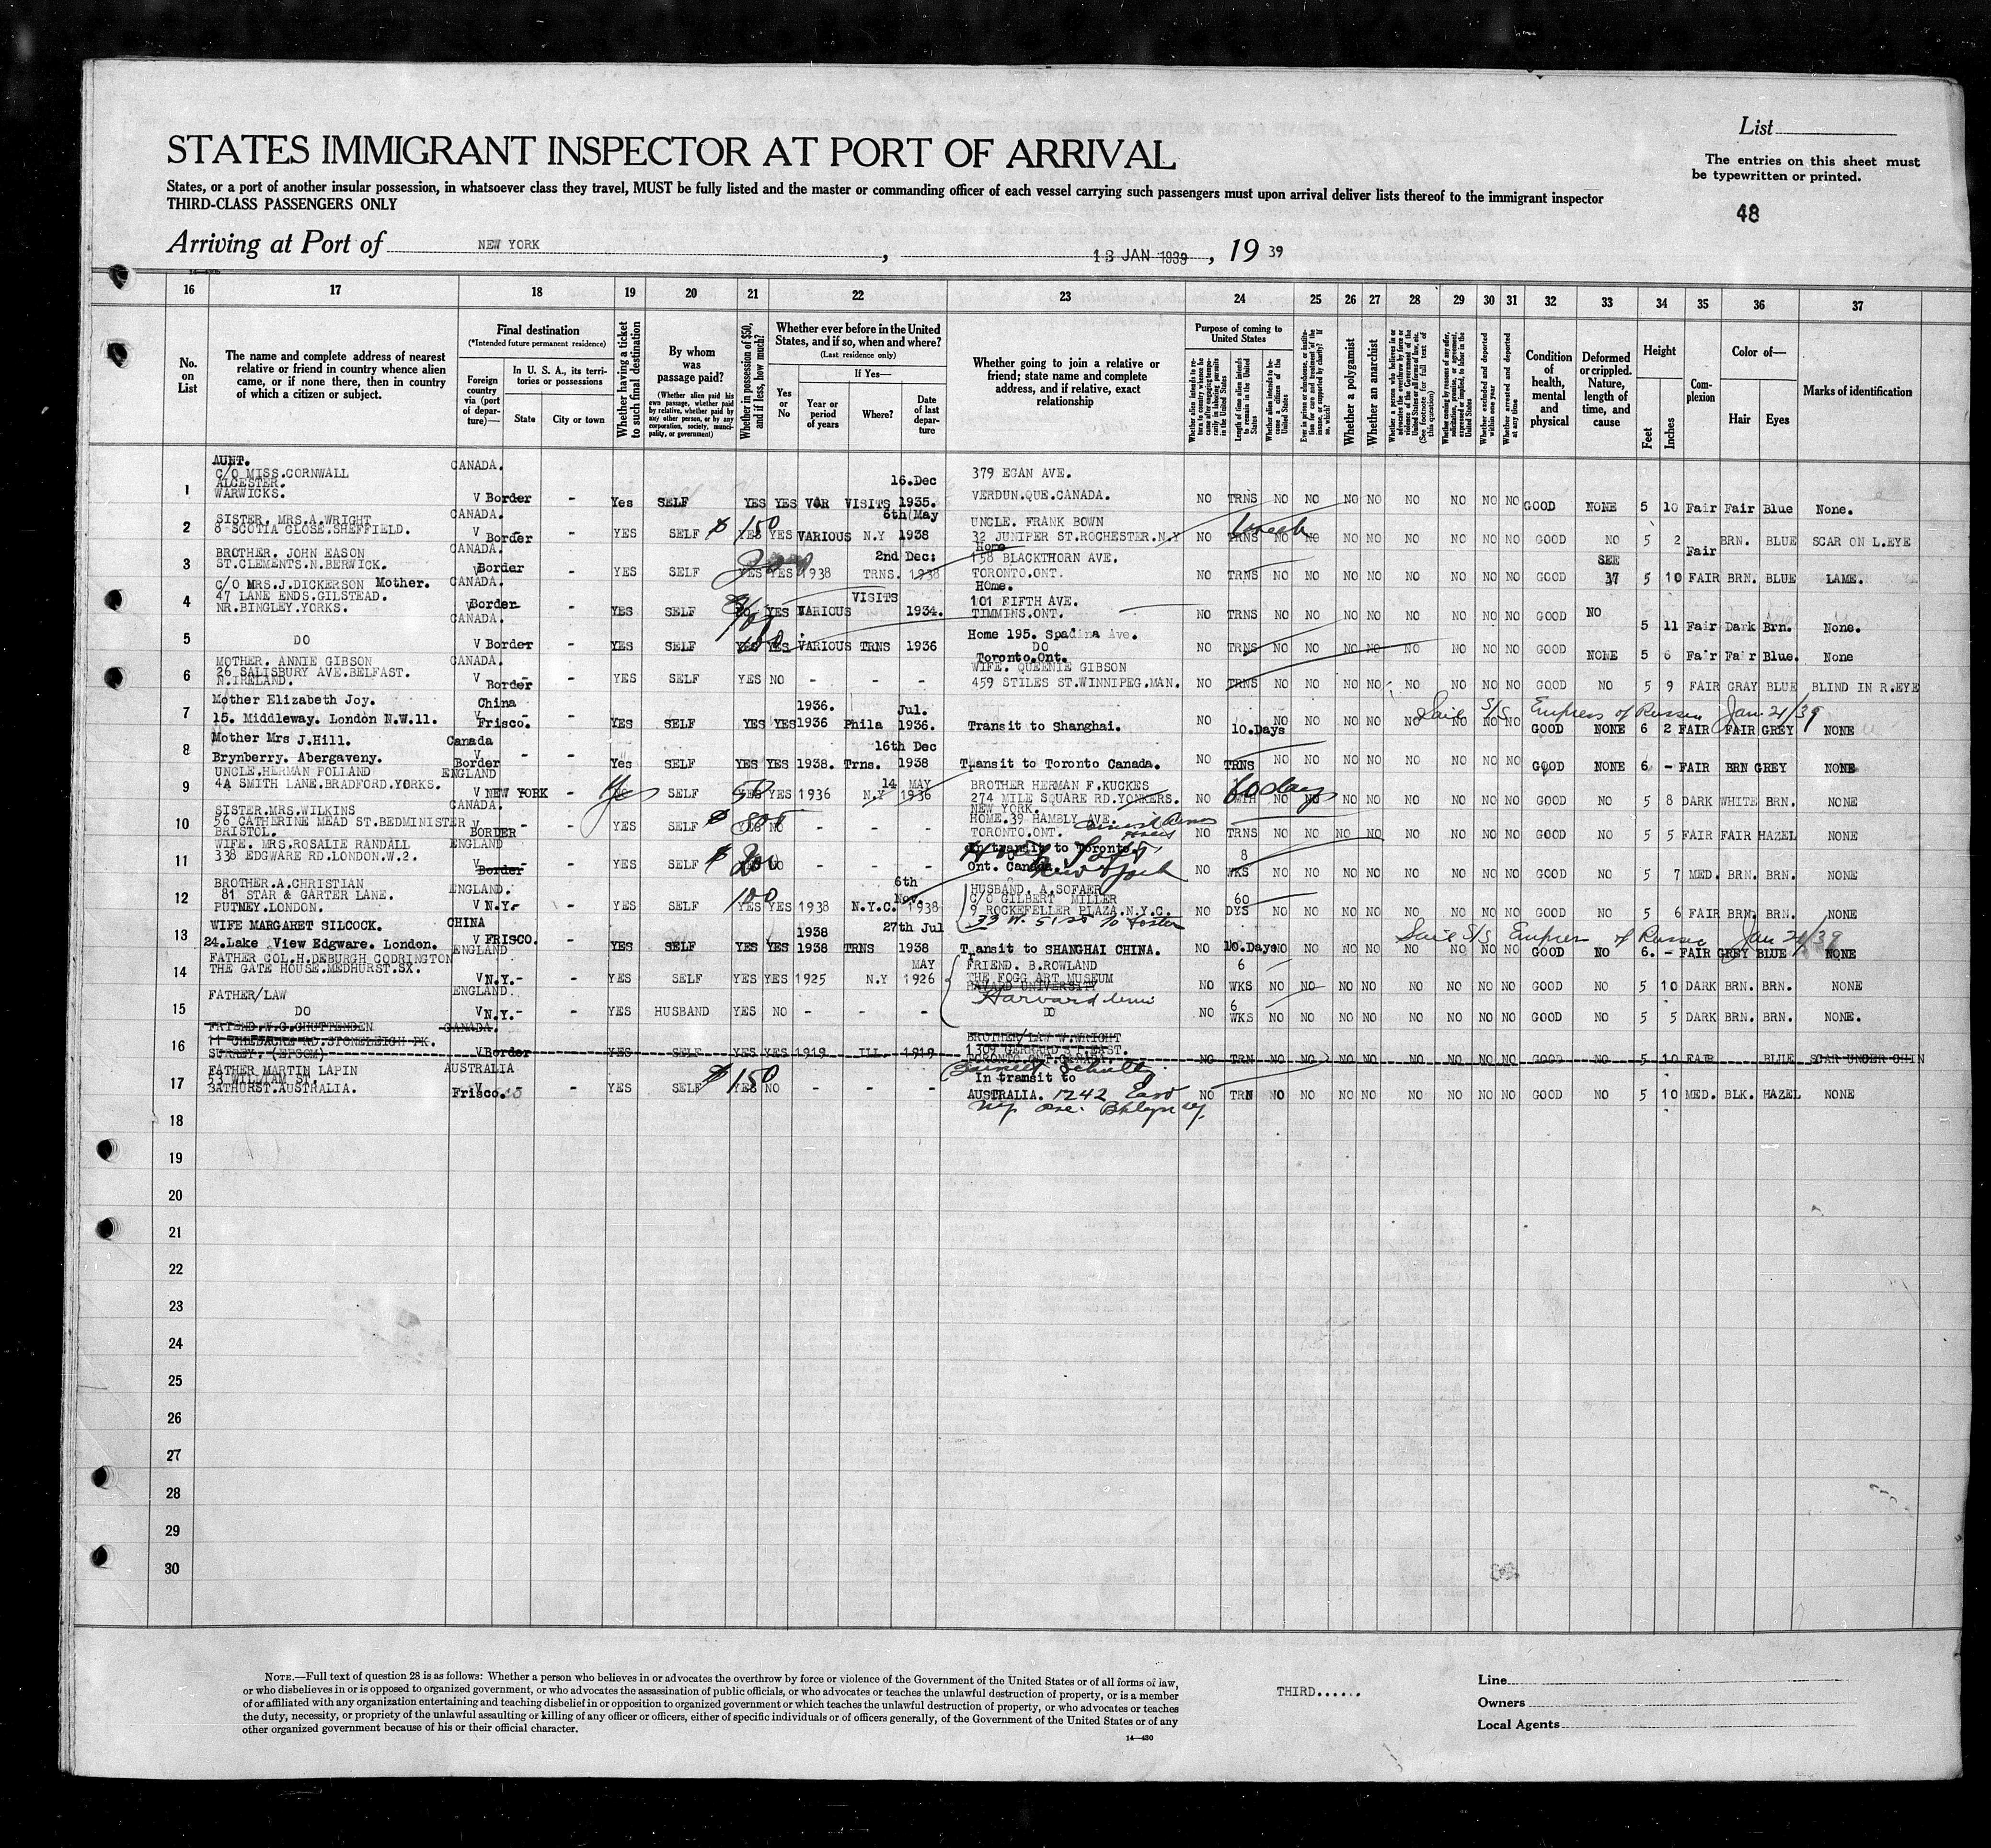 List
STATES IMMIGRANT INSPECTOR AT PORT OF ARRIVAL
The entries on this sheet must
be typewritten or printed.
States, or a port of another insular possession, in whatsoever class they travel, MUST be fully listed and the master or commanding officer of each vessel carrying such passengers must upon arrival deliver lists thereof to the immigrant inspector
THIRD-CLASS PASSENGERS ONLY
48
Arriving at Port of NEW YORK, 13 JAN 1939, 19 39
16 17 18 19 20 21 22 23 24 25 26 27 28 29 30 31 32 33 34 35 36 37
No. on List
The name and complete address of nearest relative or friend in country whence alien came, or if none there, then in country of which a citizen or subject.
Final destination
(*Intended future permanent residence)
Foreign country via (port of departure)—
In U. S. A., its territories or possessions
State
City or town
Whether having a ticket to such final destination
By whom was passage paid?
(Whether alien paid his own passage, whether paid by relative, whether paid by any other person, or by any corporation, society, municipality, or government)
Whether in possession of $50, and if less, how much?
Whether ever before in the United States, and if so, when and where?
(Last residence only)
Yes or No
If Yes—
Year or period of years
Where?
Date of last departure
Whether going to join a relative or friend; state name and complete address, and if relative, exact relationship
Purpose of coming to United States
Length of time alien intends to remain in the United States
Whether alien intends to become a citizen of the United States
Whether a polygamist
Whether an anarchist
Whether excluded and deported within one year
Whether arrested and deported at any time
Condition of health, mental and physical
Deformed or crippled. Nature, length of time, and cause
Height
Feet
Inches
Complexion
Color of—
Hair
Eyes
Marks of identification
1 AUNT. C/O MISS.CORNWALL ALCESTER. WARWICKS. CANADA. V Border - Yes SELF YES YES VAR VISITS 16.Dec 1935. 379 EGAN AVE. VERDUN.QUE.CANADA. NO TRNS NO NO NO NO NO NO NO NO GOOD NONE 5 10 Fair Fair Blue None.
2 SISTER. MRS.A.WRIGHT 8 SCOTIA CLOSE.SHEFFIELD. CANADA. V Border - YES SELF $150 YES YES VARIOUS N.Y 6th May 1938 UNCLE. FRANK BOWN 32 JUNIPER ST.ROCHESTER.N.Y NO TRNS NO NO NO NO NO NO NO NO GOOD NO 5 2 Fair BRN. BLUE SCAR ON L.EYE
3 BROTHER. JOHN EASON ST.CLEMENTS.N.BERWICK. CANADA. V Border - YES SELF YES YES 1938 TRNS. 2nd Dec: 1938 Home 158 BLACKTHORN AVE. TORONTO.ONT. NO TRNS NO NO NO NO NO NO NO NO GOOD SEE 37 5 10 FAIR BRN. BLUE LAME.
4 C/O MRS.J.DICKERSON Mother. 47 LANE ENDS.GILSTEAD. NR.BINGLEY.YORKS. CANADA. Border - YES SELF YES VARIOUS VISITS 1934. HOme. 101 FIFTH AVE. TIMMINS.ONT. NO TRNS NO NO NO NO NO NO NO NO GOOD NO 5 11 Fair Dark Brn. None.
5 DO CANADA. V Border - YES SELF YES YES VARIOUS TRNS 1936 Home 195. Spadina Ave. DO Toronto.Ont. NO TRNS NO NO NO NO NO NO NO NO GOOD NONE 5 6 Fair Fair Blue. None
6 MOTHER. ANNIE GIBSON 26 SALISBURY AVE.BELFAST. N.IRELAND. CANADA. V Border - YES SELF YES NO - - - WIFE. QUEENIE GIBSON 459 STILES ST.WINNIPEG.MAN. NO TRNS NO NO NO NO NO NO NO NO GOOD NO 5 9 FAIR GRAY BLUE BLIND IN R.EYE
7 Mother Elizabeth Joy. 15. Middleway. London N.W.11. China V Frisco. - YES SELF YES YES 1936. 1936 Phila Jul. 1936. Transit to Shanghai. NO 10.Days NO NO NO NO NO NO NO NO Sail S/S Empress of Russia Jan 21/39 GOOD NONE 6 2 FAIR FAIR GREY NONE
8 Mother Mrs J.Hill. Brynberry. Abergaveny. Canada V Border - Yes SELF YES YES 1938. Trns. 16th Dec 1938 Transit to Toronto Canada. NO TRNS NO NO NO NO NO NO NO NO GOOD NONE 6 - FAIR BRN GREY NONE
9 UNCLE.HERMAN POLLAND 4A SMITH LANE.BRADFORD.YORKS. ENGLAND V NEW YORK - Yes SELF 50 YES YES 1936 N.Y 14 MAY 1936 BROTHER HERMAN F.KUCKES 274 MILE SQUARE RD.YONKERS. NEW YORK. NO 60 days NO NO NO NO NO NO NO NO GOOD NO 5 8 DARK WHITE BRN. NONE
10 SISTER.MRS.WILKINS 56 CATHERINE MEAD ST.BEDMINISTER BRISTOL. CANADA. V BORDER - YES SELF $ YES NO - - - HOME.39 HAMBLY AVE. TORONTO.ONT. NO TRNS NO NO NO NO NO NO NO NO GOOD NO 5 5 FAIR FAIR HAZEL NONE
11 WIFE. MRS.ROSALIE RANDALL 338 EDGWARE RD.LONDON.W.2. ENGLAND V Border - YES SELF $200 NO - - - In transit to Toronto. Ont. Canada. New York NO 8 WKS NO NO NO NO NO NO NO NO GOOD NO 5 7 MED. BRN. BRN. NONE
12 BROTHER.A.CHRISTIAN 81 STAR & GARTER LANE. PUTNEY.LONDON. ENGLAND. V N.Y. - YES SELF 100 YES YES 1938 N.Y.C. 6th Nov. 1938 HUSBAND. A.SOFAER C/O GILBERT MILLER 9 ROCKEFELLER PLAZA.N.Y.C. NO 60 DYS NO NO NO NO NO NO NO NO GOOD NO 5 6 FAIR BRN. BRN. NONE
13 WIFE MARGARET SILCOCK. 24.Lake View Edgware. London. CHINA V FRISCO. - YES SELF YES YES 1938 1938 TRNS 27th Jul 1938 Transit to SHANGHAI CHINA. NO 10.Days NO NO NO NO NO NO NO NO Sail S/S Empress of Russia Jan 21/39 GOOD NO 6. - FAIR GREY BLUE NONE
14 FATHER COL.H.DEBURGH CODRINGTON THE GATE HOUSE.MEDHURST.SX. ENGLAND V N.Y. - YES SELF YES YES 1925 N.Y MAY 1926 FRIEND. B.ROWLAND THE FOGG ART MUSEUM HAVARD UNIVERSITY Harvard Univ NO 6 WKS NO NO NO NO NO NO NO NO GOOD NO 5 10 DARK BRN. BRN. NONE
15 FATHER/LAW DO ENGLAND. V N.Y. - YES HUSBAND YES NO - - - DO NO 6 WKS NO NO NO NO NO NO NO NO GOOD NO 5 5 DARK BRN. BRN. NONE.
16 FRIEND.W.G.CHUTTENDEN STONELEIGH PK. SURREY. (EPSOM) CANADA. V Border YES SELF YES YES 1919 ILL. 1919 BROTHER/LAW W.WRIGHT 1309 GERRARD ST.EAST. TORONTO.ONT.CANADA. NO TRN NO NO NO NO NO NO NO NO GOOD NO 5 10 FAIR BLUE SCAR UNDER CHIN
17 FATHER MARTIN LAPIN 53 WILLIAM ST. BATHURST.AUSTRALIA. AUSTRALIA V Frisco. - YES SELF $150 YES NO - - - In transit to AUSTRALIA. 1242 East NO TRN NO NO NO NO NO NO NO NO GOOD NO 5 10 MED. BLK. HAZEL NONE
18
19
20
21
22
23
24
25
26
27
28
29
30
NOTE.—Full text of question 28 is as follows: Whether a person who believes in or advocates the overthrow by force or violence of the Government of the United States or of all forms of law,
or who disbelieves in or is opposed to organized government, or who advocates the assassination of public officials, or who advocates or teaches the unlawful destruction of property, or is a member
of or affiliated with any organization entertaining and teaching disbelief in or opposition to organized government or which teaches the unlawful destruction of property, or who advocates or teaches
the duty, necessity, or propriety of the unlawful assaulting or killing of any officer or officers, either of specific individuals or of officers generally, of the Government of the United States or of any
other organized government because of his or their official character.
14—430
THIRD......
Line
Owners
Local Agents